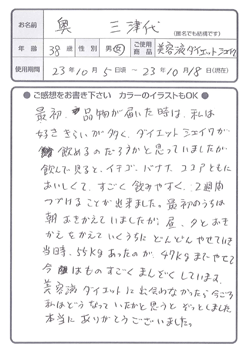 お名前 奥 三津代
(匿名でも結構です)
年齢 38歳 性別 男・女 ご使用商品 美容液ダイエットシェイク
使用期間 23年10月5日頃 ～ 23年10月18日(現在)
●ご感想をお書き下さい カラーのイラストもOK●
最初、品物が届いた時は、私は
好ききらいが多く、ダイエットシェイクが
飲めるのだろうかと思っていましたが
飲んで見ると、イチゴ、バナナ、ココアともに
おいしくて、すごく飲みやすく、2週間
つづける事が出来ました。最初のうちは
朝おきかえていましたが、昼、夕とおき
かえをかえていくうちにどんどんやせていき
当時、55kgあったのが、47kgまでやせて
今はものすごくまんぞくしています。
美容液ダイエットに出会わなかったら今ごろ
私はどうなっていたかと思うとぞっとしました
本当にありがとうございました。